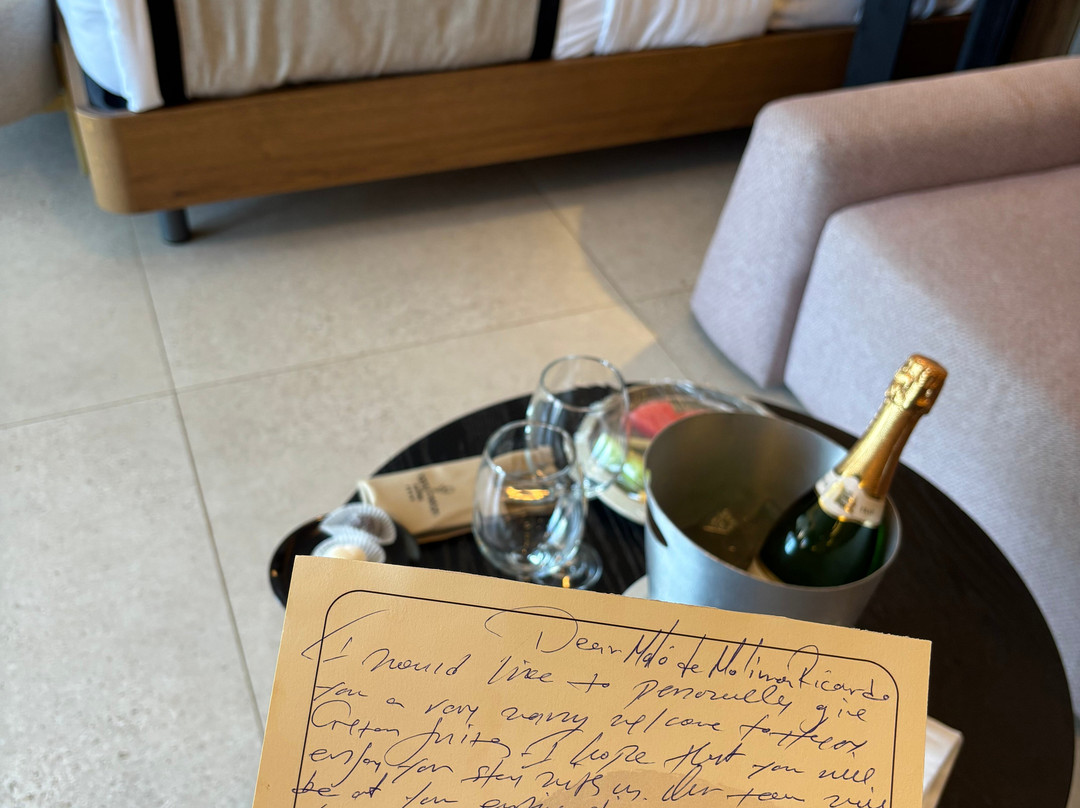 Dear Maló de Molina Ricardo
I would like to personally give
you a very warm welcome to
Cretan I hope that you will
enjoy your stay with us. Our team will
be at your